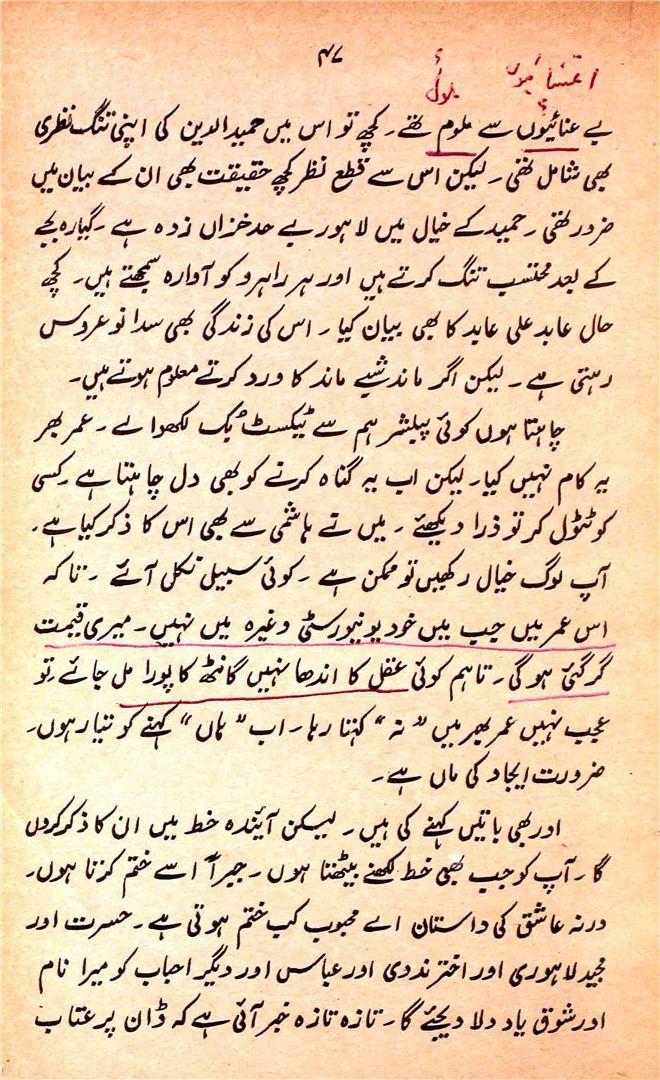 ۴۷
اعتنائیوں ملول
بے عنائیوں سے ملوم تھے۔ کچھ تو اس میں حمید الدین کی اپنی تنگ نظری
بھی شامل تھی۔ لیکن اس سے قطع نظر کچھ حقیقت بھی ان کے بیان میں
ضرور تھی۔ حمید کے خیال میں لاہور بے حد خزاں زدہ ہے۔ گیارہ بجے
کے بعد محتسب تنگ کرتے ہیں اور ہر راہرو کو آوارہ سمجھتے ہیں۔ کچھ
حال عابد علی عابد کا بھی بیان کیا۔ اس کی زندگی بھی سدا نو عروس
رہتی ہے۔ لیکن اگر ماند شبے ماند کا ورد کرتے معلوم ہوتے ہیں۔
چاہتا ہوں کوئی پبلشر ہم سے ٹیکسٹ بک لکھوا لے۔ عمر بھر
یہ کام نہیں کیا۔ لیکن اب یہ گناہ کرنے کو بھی دل چاہتا ہے۔ کسی
کو ٹٹول کر تو ذرا دیکھئے۔ میں نے ہاشمی سے بھی اس کا ذکر کیا ہے۔
آپ لوگ خیال رکھیں تو ممکن ہے۔ کوئی سبیل نکل آئے۔ تا کہ
اس عمر میں جب میں خود یونیورسٹی وغیرہ میں نہیں۔ میری قیمت
گر گئی ہو گی۔ تاہم کوئی عقل کا اندھا نہیں گانٹھ کا پورا مل جائے۔ تو
عجب نہیں عمر بھر میں ”نہ“ کہتا رہا۔ اب ”ہاں“ کہنے کو تیار ہوں۔
ضرورت ایجاد کی ماں ہے۔
اور بھی باتیں کہنے کی ہیں۔ لیکن آئندہ خط میں ان کا ذکر کروں
گا۔ آپ کو جب بھی خط لکھنے بیٹھتا ہوں۔ جبراً اسے ختم کرتا ہوں۔
ورنہ عاشق کی داستان اے محبوب کب ختم ہوتی ہے۔ حسرت اور
مجید لاہوری اور اختر ندوی اور عباس اور دیگر احباب کو میرا نام
اور شوق یاد دلا دیجئے گا۔ تازہ تازہ خبر آئی ہے کہ ڈان پر عتاب